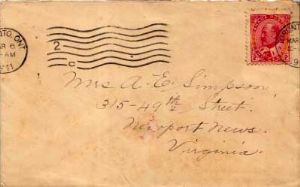 TO, ONT
6
AM
2
C
Mrs A. E. Simpson,
315-49th Street.
Newport News.
Virginia.